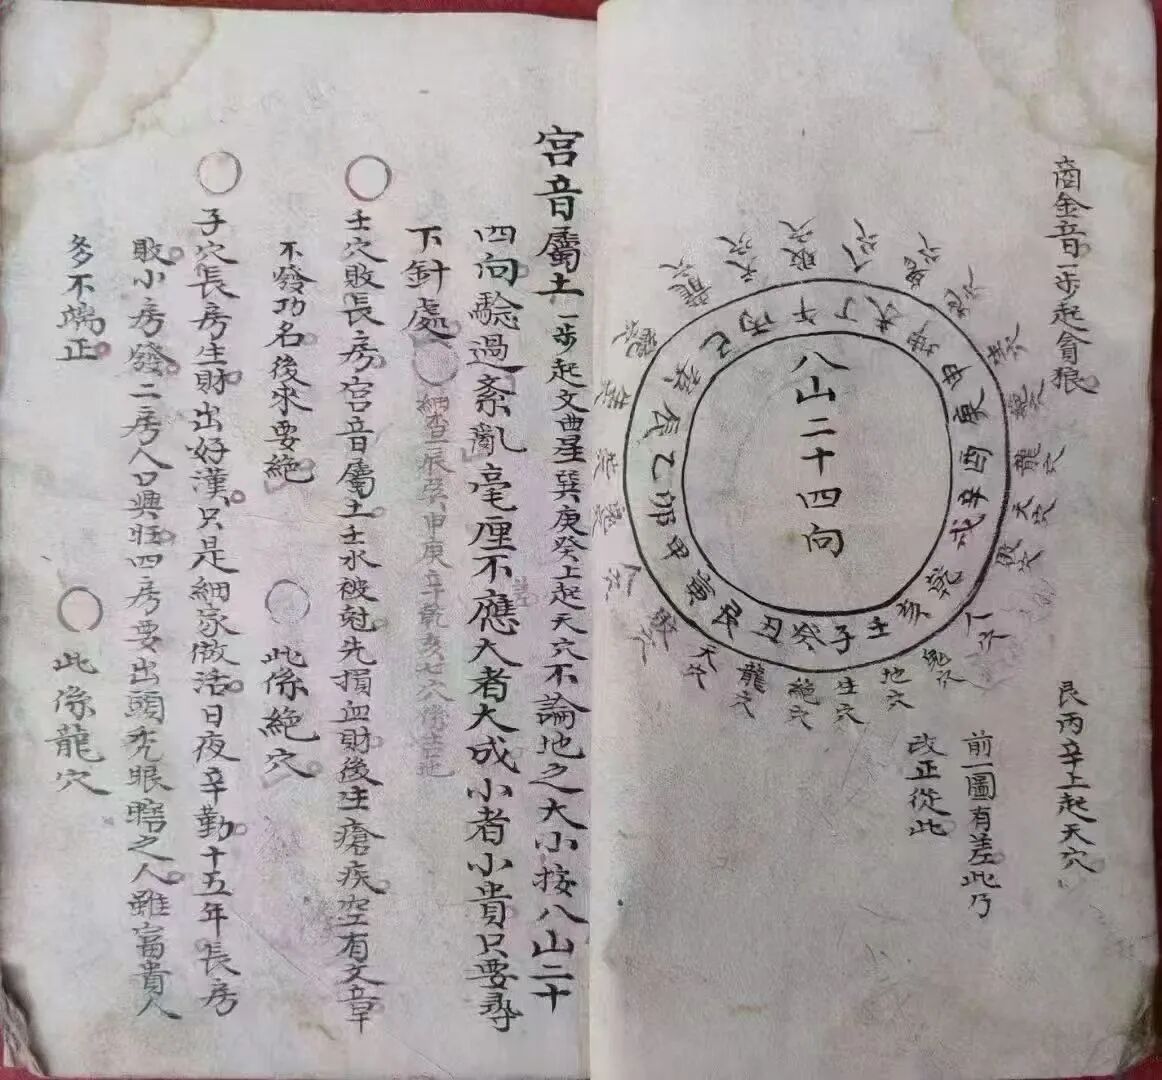 商金音一步起貪狼
艮丙辛上起天穴
前一圖有差此乃
改正從此
八山二十四向
壬子癸丑艮寅甲卯乙辰巽巳丙午丁未坤申庚酉辛戌乾亥
地穴
生穴
絶穴
龍穴
天穴
敗穴
人穴
鬼穴
宮音屬土一步起文曲星巽庚癸上起天穴不論地之大小按八山二十
四向驗過紊亂毫厘不應大者大成小者小貴只要尋
下針處
細查辰巽申庚辛乾亥七穴係吉地
壬穴敗長房宮音屬土壬水被尅先損血財後生瘡疾空有文章
不發功名後求要絶
此係絶穴
子穴長房生財出好漢只是細家做活日夜辛勤十五年長房
敗小房發二房人口興旺四房要出頭禿眼瞎之人雖富貴人
多不端正
此係龍穴